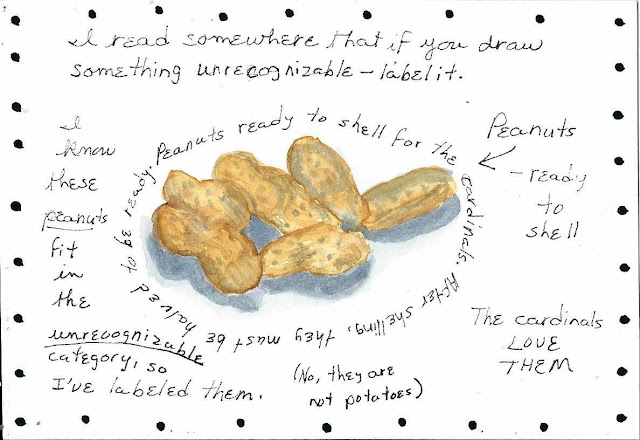 I read somewhere that if you draw
something unrecognizable - label it.
I
know
these
peanuts
fit
in
the
unrecognizable
category, so
I've labeled them.
Peanuts ready to shell for the cardinals. After shelling, they must be halved to be ready.
Peanuts
- ready
to
shell
The cardinals
LOVE
THEM
(No, they are
not potatoes)